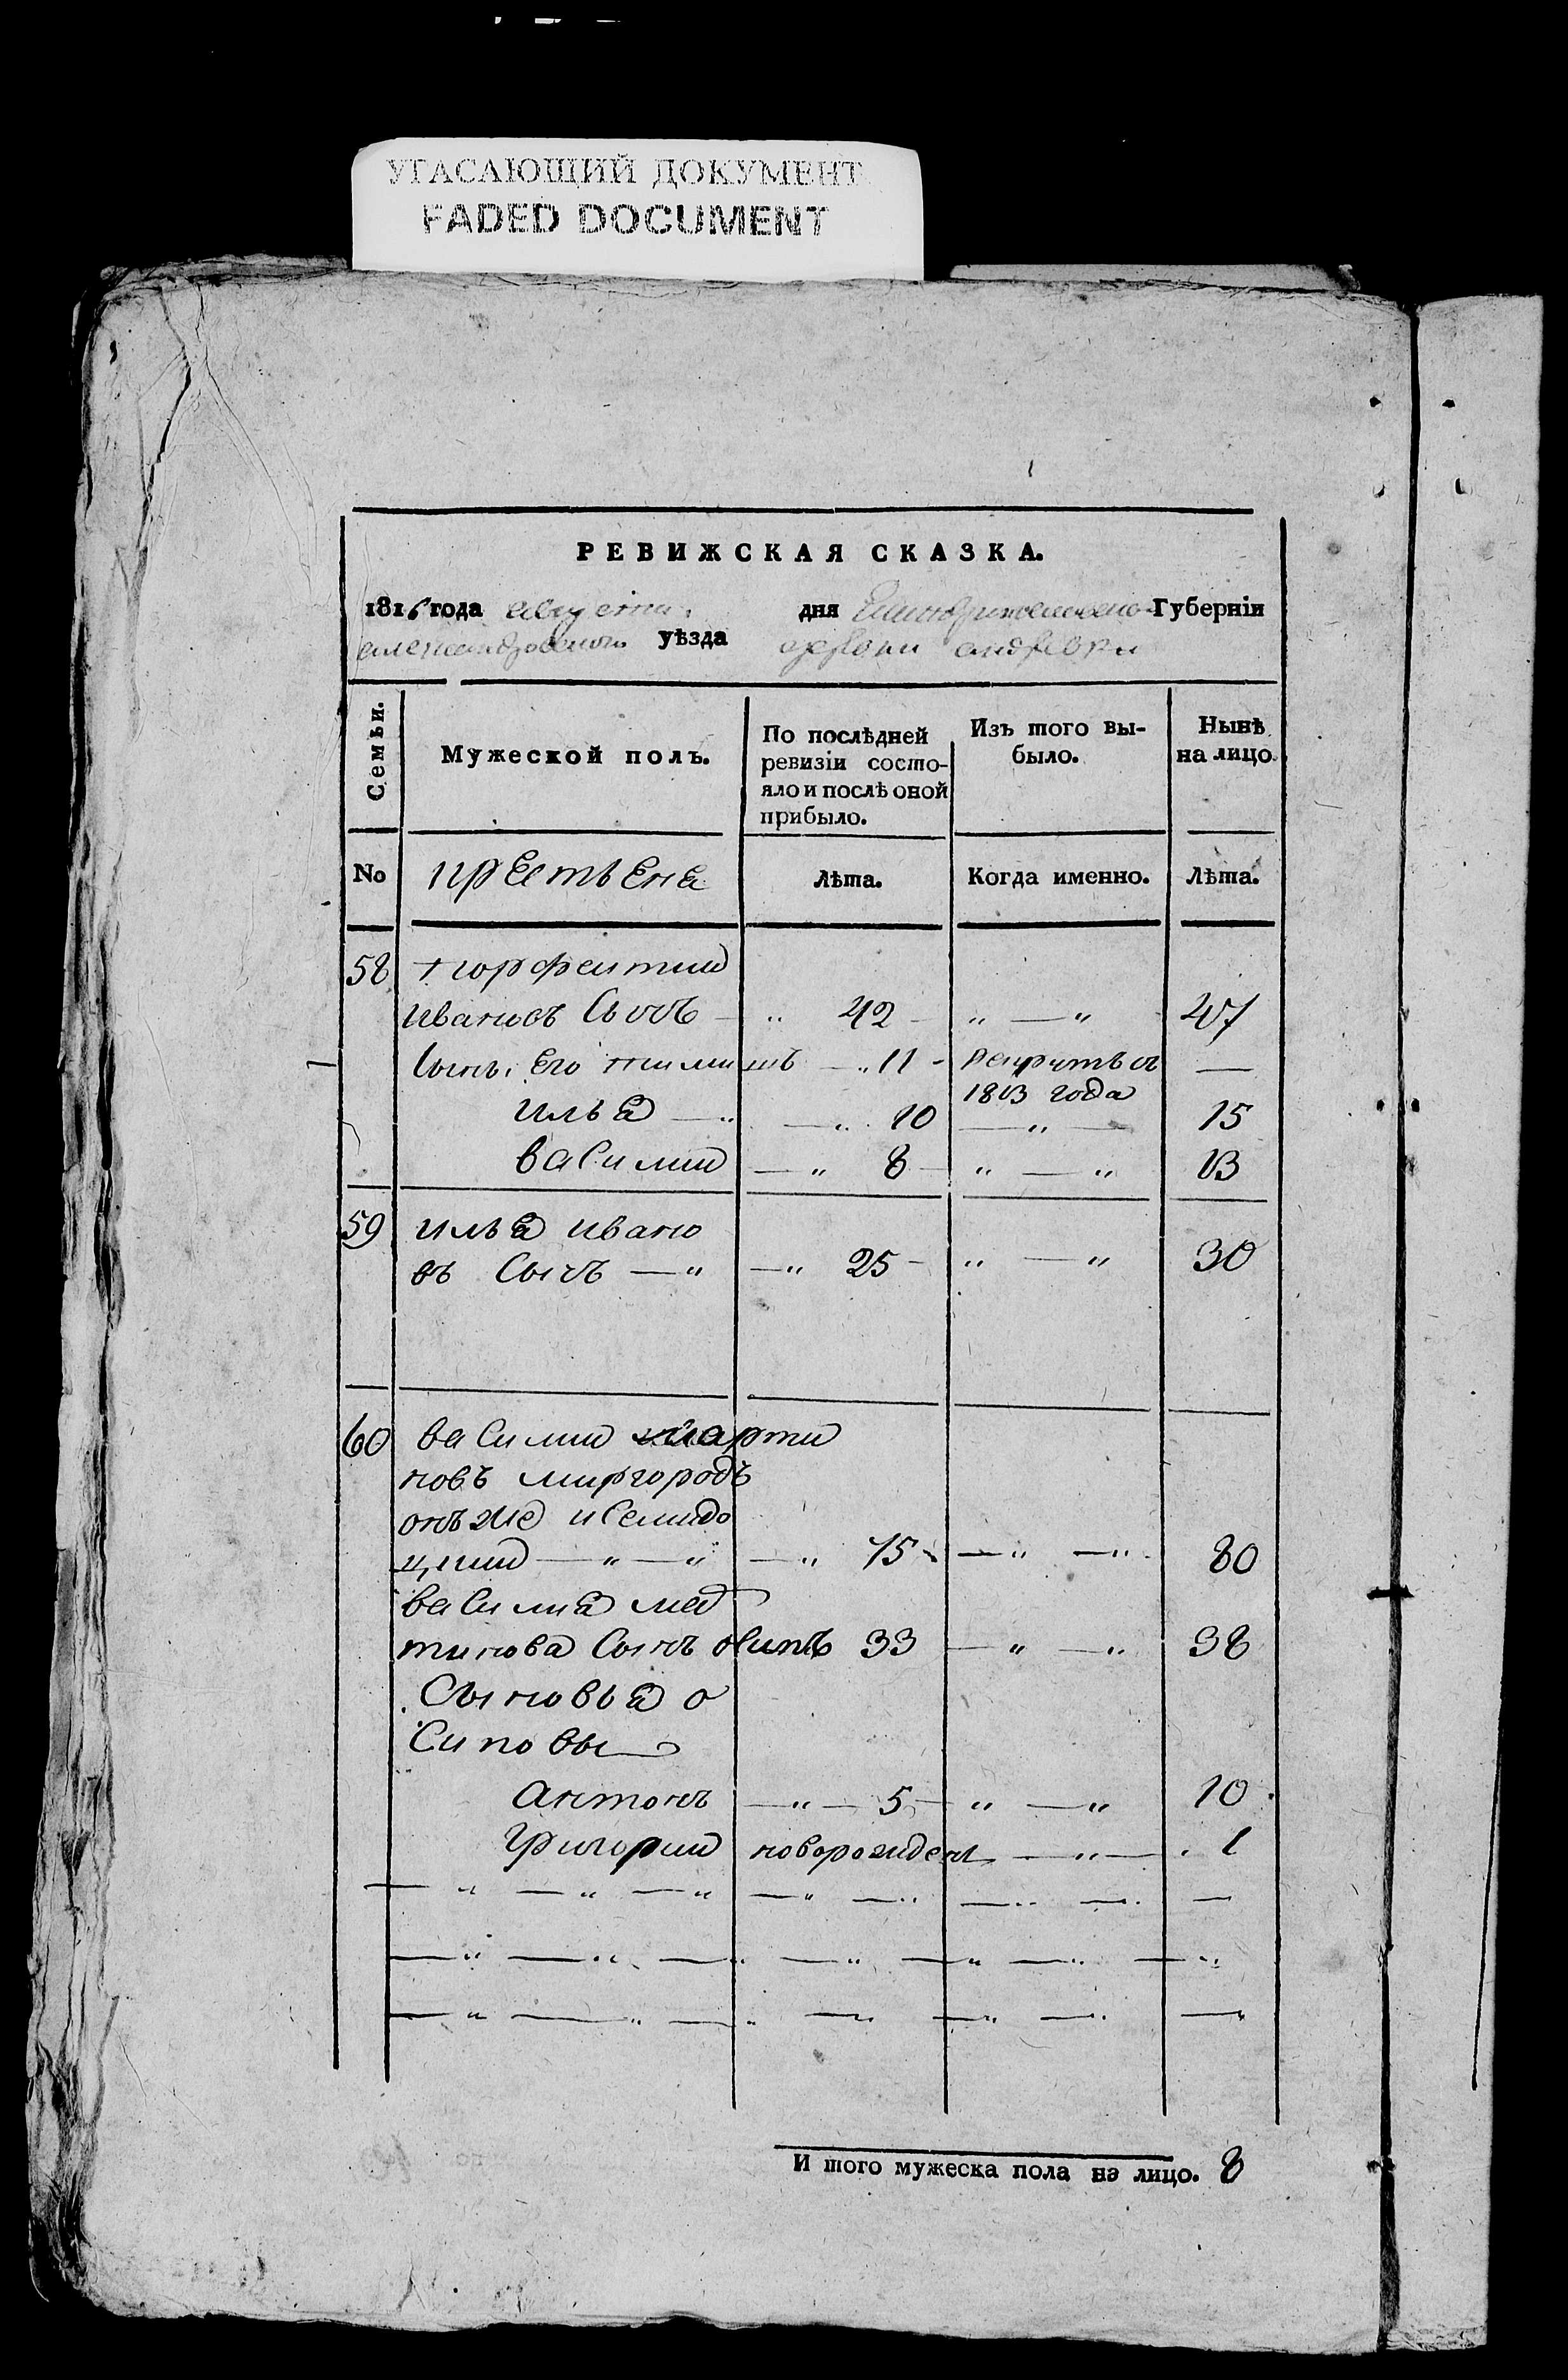 УГАСАЮЩИЙ ДОКУМЕНТ
FADED DOCUMENT
РЕВИЖСКАЯ СКАЗКА.
1816 года августа дня Екатеринославско Губерніи
александровского уѣзда андревки
Семьи. Мужеской полъ. По послѣдней ревизіи состояло и послѣ оной прибыло. Изъ того выбыло. Нынѣ на лицо.
No крестьене Лѣта. Когда именно. Лѣта.
58
ивановъ Сычъ 42 47
Сынъ его 11
1813 года
илья 10 15
василий 8 13
59 илья ивано
въ Сычъ 25 30
60 василий марти
новъ миргородъ
онъ же
75 80
василия мар
тинова Сынъ осипъ 33 38
Сыновья о
Сиповы
антонъ 5 10
григорий новорожденъ 1
И того мужеска пола на лицо. 8